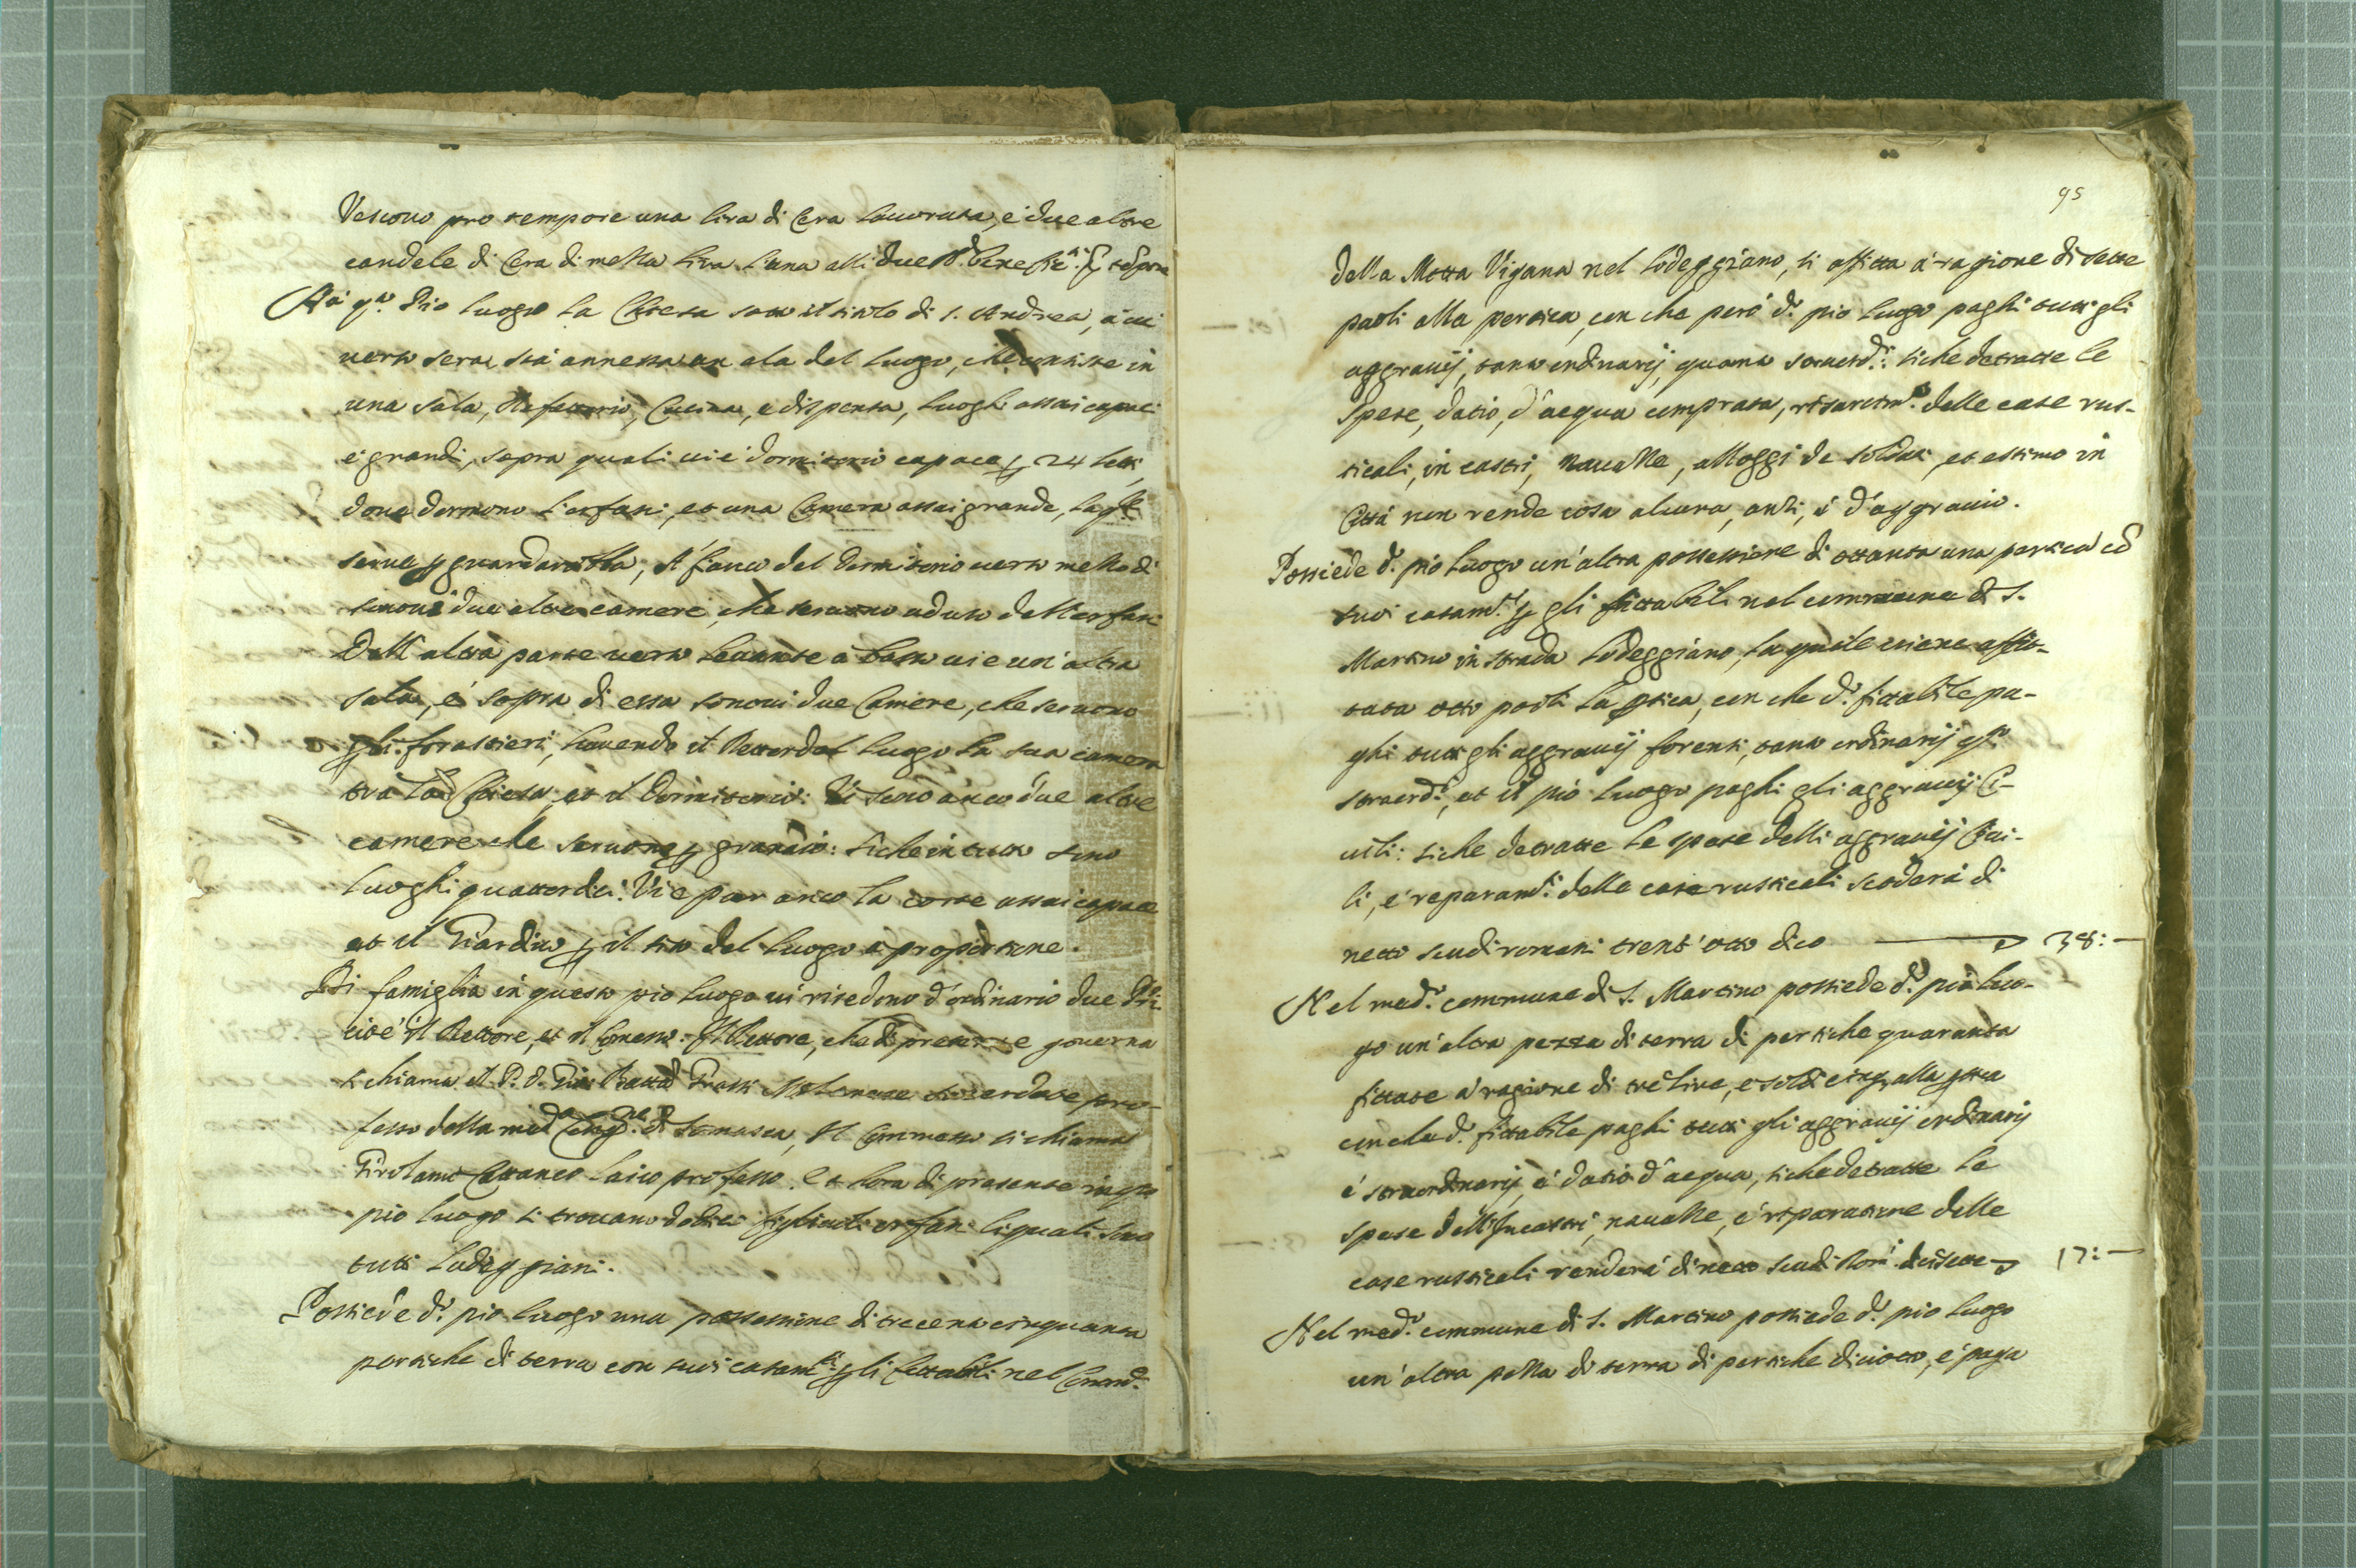 Vescovo pro tempore una lira di Cera lavorata, e due altre
candele di Cera di mezza lira l'una alli due
Hà q.to Pio luogo la Chiesa sotto il titolo di S. Andrea, à cui
verso sera stà annessa un ala del luogo, che consiste in
una sala, Refettorio, Cucina, e dispensa, luoghi assai capaci
e grandi, sopra quali vi è dormitorio capace p 24 letti,
dove dormono l'orfani, et una Camera assai grande, la q.le
serve p guardarobba, A' fianco del Dormitorio verso mezzo dì
sonovi due altre camere, che servono ad uso dell'orfani
Dall'altra parte verso levante à basso vi è un'altra
sala, e sopra di essa sonovi due Camere, che servono
p li forastieri, havendo il Rettor del luogo la sua camera
trà la Chiesa, et il Dormitorio: Vi sono anco due altre
camere che servono p granaio: siche in tutto sono
luoghi quattordici. Vi è pur anco la corte assai capace
et il Giardino p il sito del luogo à proportione.
Di famiglia in questo pio luogo vi risedono d'ordinario due P̃ri.
cioè il Rettore, et il Comesso: Il Rettore, che di presente governa
si chiama il P. D. Gio: Batta Frassi Milanese sacerdote pro-
fesso della med.a Cong.ne di Somasca, Il Commesso si chiama
Girolamo Cattaneo laico professo. Et hora di presente in q.to
pio luogo si trovano dodici figliuoli orfani li quali sono
tutti Lodeggiani.
Possiede d.o pio luogo una possessione di trecento cinquanta
pertiche di terra con suoi casam.ti p li fittabili nel
95
della Motta Vigana nel Lodeggiano, si affitta à ragione di sette
paoli alla pertica, con che però d.o pio luogo paghi tutti gli
aggravij, tanto ordinarij, quanto straord.ri: siche detratte le
spese, datio, d'acqua comprata, risarcim.to delle case rus-
ticali, in castri, navazze, alloggi de soldati, et estimo in
Città non rende cosa alcuna, anzi, è d'aggravio.
Possiede d.o pio luogo un'altra possessione di ottanta una pertica cõ
suoi casam.ti p gli fittabili nel commune di S.
Martino in strada Lodeggiano, la quale viene affit-
tata otto paoli la ptica, con che d.o fittabile pa-
ghi tutti gli aggravij forensi, tanto ordinarij q.to
straord.ri, et il pio luogo paghi gli aggravij Ci-
vili: siche detratte le spese delli aggravij Civi-
li, e reparam.ti delle case rusticali scoderà di
netto scudi romani trent'otto dico 38:—
Nel med.o commune di S. Martino possiede d.o pio luo-
go un'altra pezza di terra di pertiche quaranta
fittate à ragione di trè lire, e soldi cinq. alla ptica
con che d.o fittabile paghi tutti gli aggravij ordinarij
e straordinarij, e datio d'acqua, siche detratte le
spese dell'Incastri, navazze, e riparatione delle
case rusticali renderà di netto scudi Rom.i dicisette 17:—
Nel med.o commune di S. Martino possiede d.o pio luogo
un'altra pezza di terra di pertiche diciotto, e paga